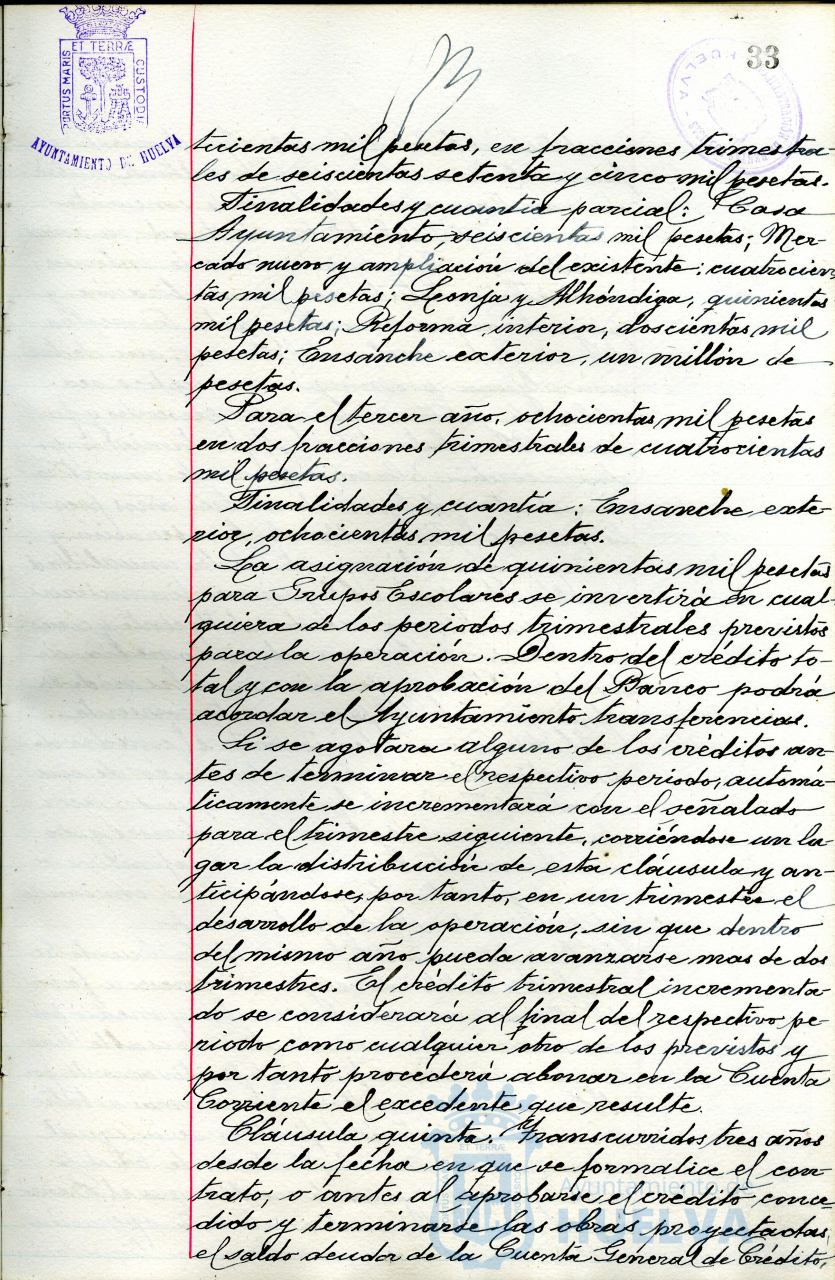 33
ET TERRÆ
PORTUS MARIS
CUSTODIA
AYUNTAMIENTO DE HUELVA
HUELVA
tecientas mil pesetas, en fracciones trimestra-
les de seiscientas setenta y cinco mil pesetas.
Finalidades y cuantia parcial: Casa
Ayuntamiento, seiscientas mil pesetas; Mer-
cado nuevo y ampliación del existente: cuatrocien-
tas, mil pesetas; Leonja y Alhóndiga, quinientas
mil pesetas; Reforma interior, doscientas mil
pesetas; Ensanche exterior, un millón de
pesetas.
Para el tercer año, ochocientas mil pesetas
en dos fracciones trimestrales de cuatrocientas
mil pesetas.
Finalidades y cuantía: Ensanche exte-
rior, ochocientas mil pesetas.
La asignación de quinientas mil pesetas
para Grupos Escolares se invertirá en cual-
quiera de los periodos trimestrales previstos
para la operación. Dentro del crédito to-
tal y con la aprobación del Banco podrá
acordar el Ayuntamiento transferencias.
Si se agotara alguno de los créditos an-
tes de terminar el respectivo periodo, automá-
ticamente se incrementará con el señalado
para el trimestre siguiente, corriéndose un lu-
gar la distribución de esta cláusula y an-
ticipándose, por tanto, en un trimestre el
desarrollo de la operación, sin que dentro
del mismo año pueda avanzarse mas de dos
trimestres. El crédito trimestral incrementa-
do se considerará al final del respectivo pe-
riodo como cualquier otro de los previstos y
por tanto procederá abonar en la Cuenta
Corriente el excedente que resulte.
Cláusula quinta. Transcurridos tres años
desde la fecha en que se formalice el con-
trato, o antes al aprobarse el crédito conce-
dido y terminarse las obras proyectadas,
el saldo deudor de la Cuenta General de Crédito,
Ayuntamiento de
HUELVA